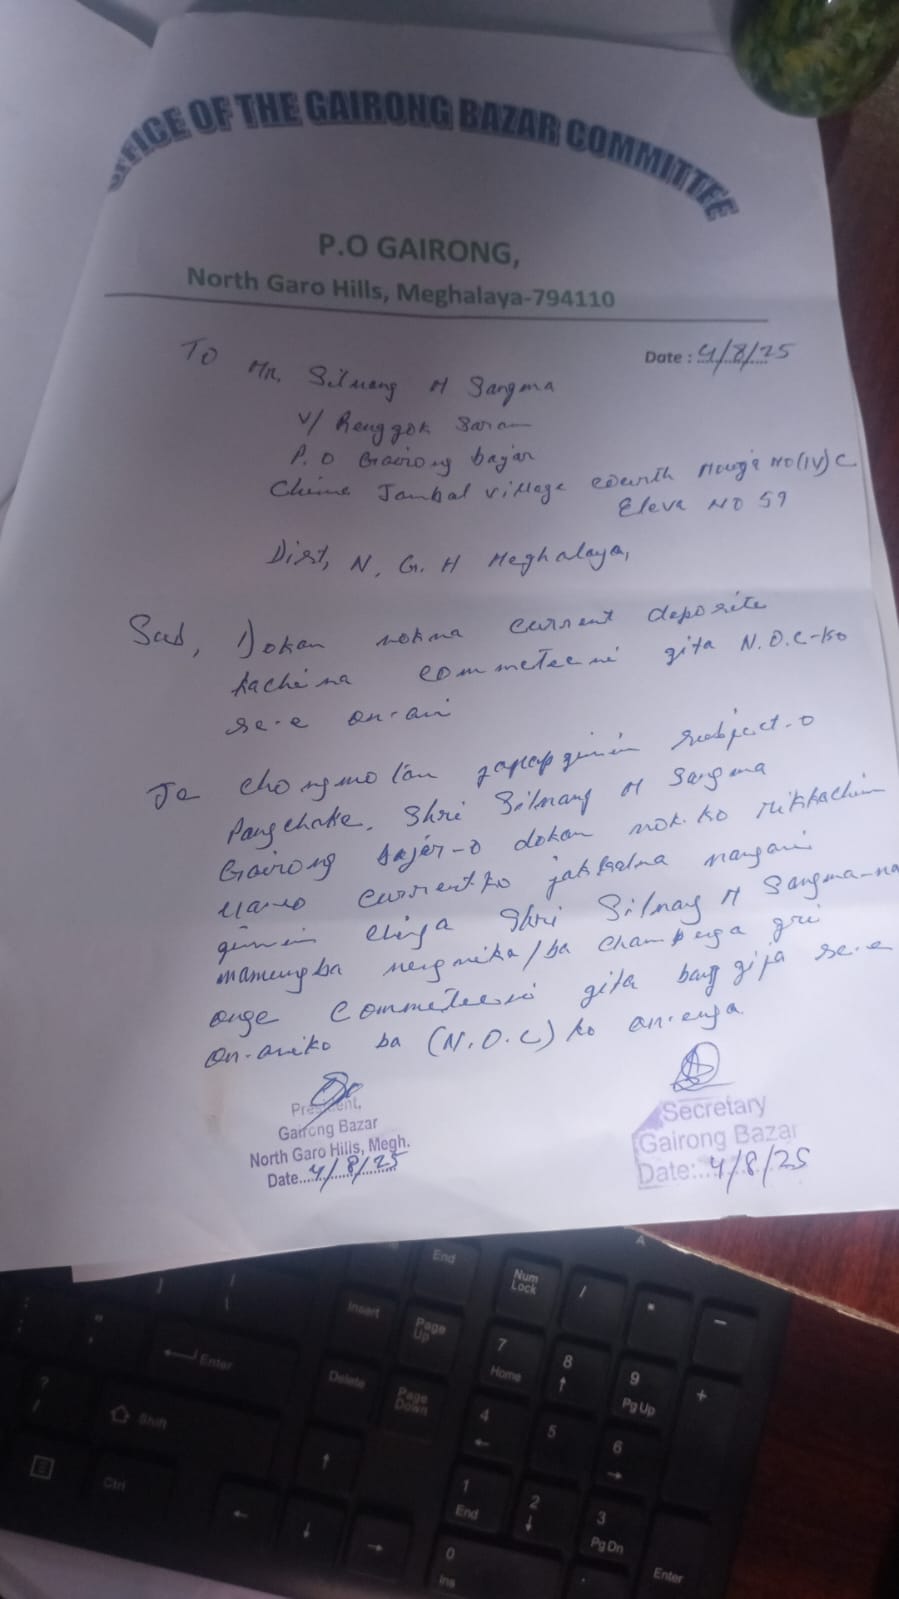 OFFICE OF THE GAIRONG BAZAR COMMITTEE
P.O GAIRONG,
North Garo Hills, Meghalaya-794110
Date : 4/8/25
To
Mr. Silnang M Sangma
V/ Renggok Saram
P. O Gairong bajar
Chima Jambal village court Mouja No (IV) C
Eleka NO 59
Dist, N. G. H Meghalaya,
Sub, Dokan nokna current deposite
kachina commeteeni gita N.O.C-ko
se·e on·ani
Ia chongmotan gapapgimin subject-o
Pangchake. Shri Silnang M Sangma
Gairong bajar-o dokan nok-ko rikkachim
uano current-ko jakkalna nangani
gimin chinga Shri Silnang M Sangma-na
mamungba neng nika/ba champenga gri
onge Commeteeni gita bang gija se·e
on·aniko ba (N.O.C) ko on·enga.
President,
Gairong Bazar
North Garo Hills, Megh.
Date....4/8/25
Secretary
Gairong Bazar
Date:..4/8/25
End
Num Lock
/
*
-
Insert
Page Up
7 Home
8
9 PgUp
+
Enter
Delete
Page Down
4
5
6
Shift
Ctrl
1 End
2
3 PgDn
Enter
0 Ins
.